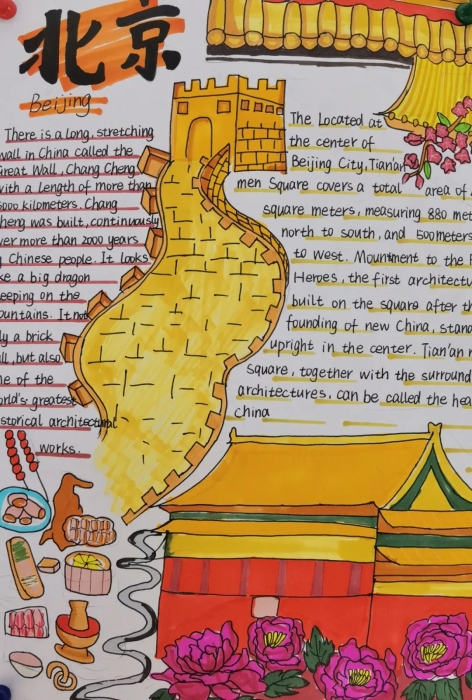 北京
Beijing
There is a long, stretching
wall in China called the
Great Wall, Chang Cheng
with a length of more than
6000 kilometers. Chang
Cheng was built, continuously
over more than 2000 years
by Chinese people. It looks
like a big dragon
sleeping on the
mountains. It not
only a brick
wall, but also
one of the
world's greatest
historical architectural
works.
The Located at
the center of
Beijing City, Tian'an
men Square covers a total area of
square meters, measuring 880 meters
north to south, and 500 meters
to west. Mounment to the
Heroes, the first architectu
built on the square after th
founding of new China, stan
upright in the center. Tian'an
square, together with the surround
architectures, can be called the hea
china